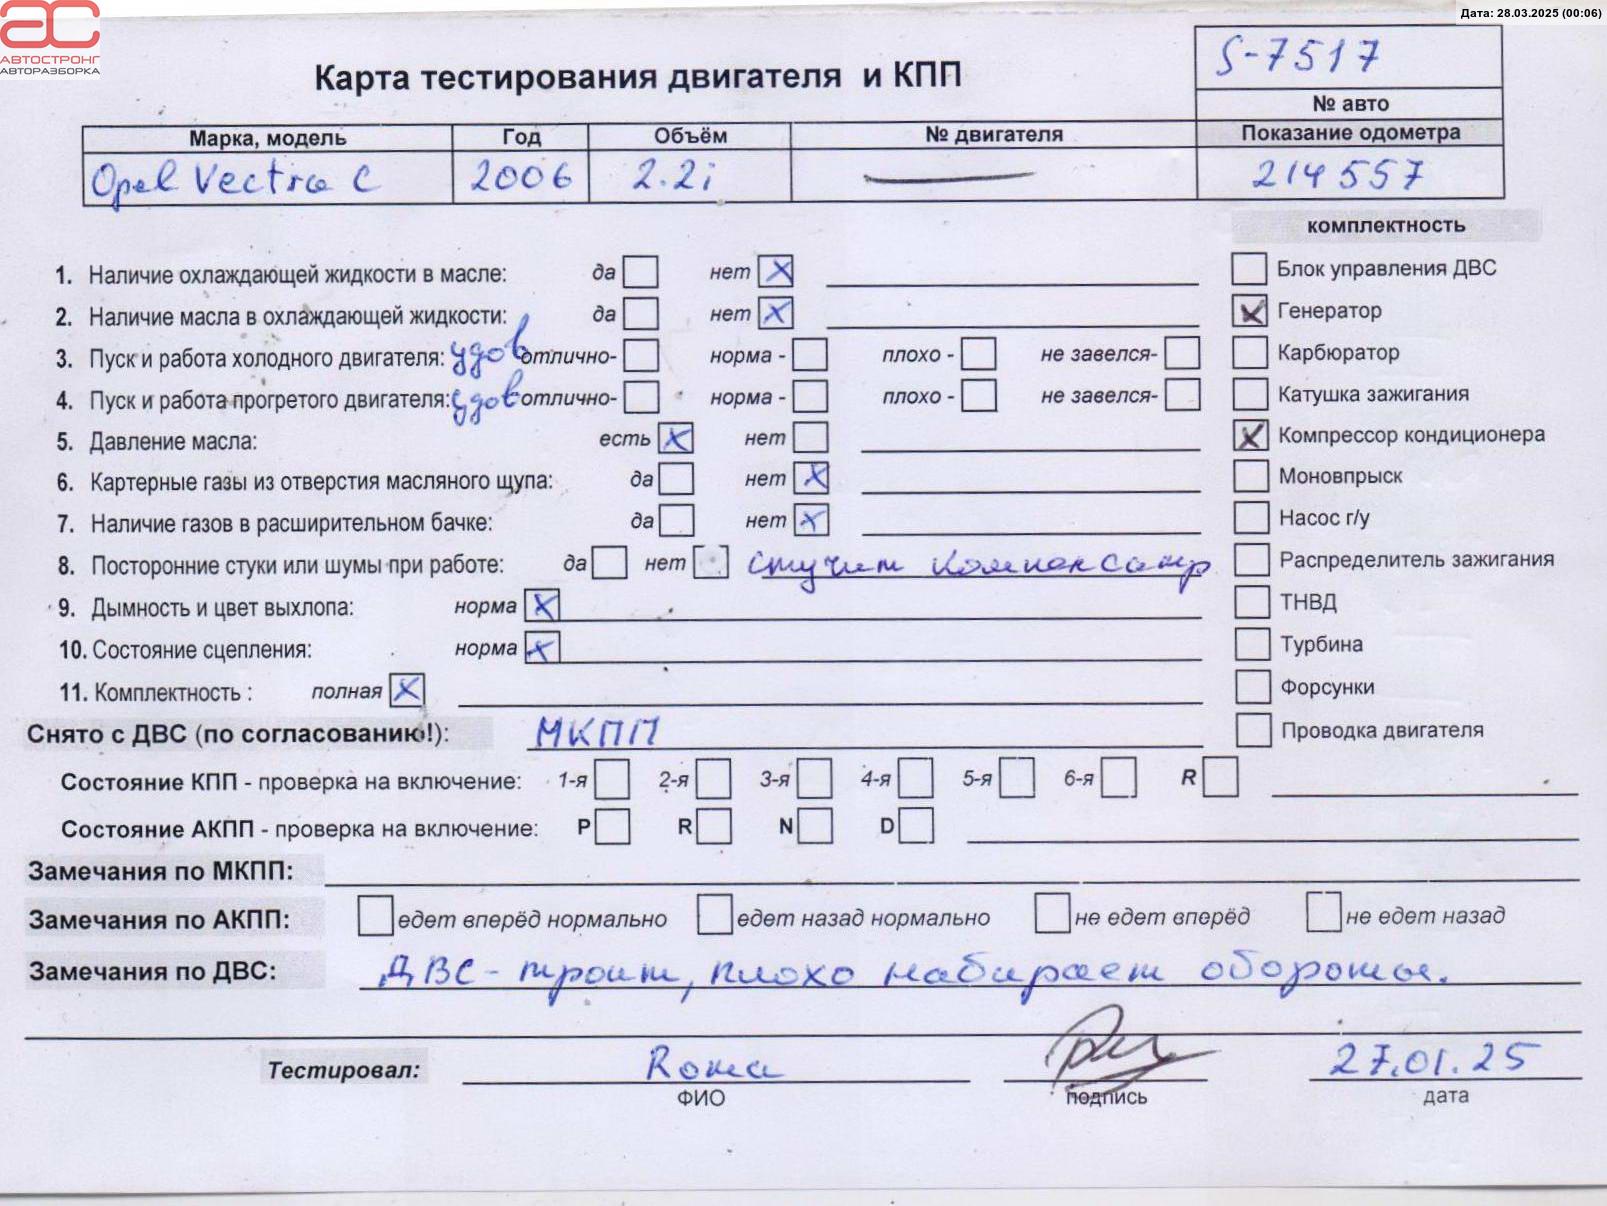 Дата: 28.03.2025 (00:06)
АС
АВТОСТРОНГ
АВТОРАЗБОРКА
S-7517
Карта тестирования двигателя и КПП
№ авто
Марка, модель Год Объём № двигателя Показание одометра
Opel Vectra C 2006 2.2i — 214557
комплектность
1. Наличие охлаждающей жидкости в масле: да нет X
Блок управления ДВС
2. Наличие масла в охлаждающей жидкости: да нет X
X Генератор
3. Пуск и работа холодного двигателя: удов отлично- норма - плохо - не завелся-
Карбюратор
4. Пуск и работа прогретого двигателя: удов отлично- норма - плохо - не завелся-
Катушка зажигания
5. Давление масла: есть X нет
X Компрессор кондиционера
6. Картерные газы из отверстия масляного щупа: да нет X
Моновпрыск
7. Наличие газов в расширительном бачке: да нет X
Насос г/у
8. Посторонние стуки или шумы при работе: да нет стучит компенсатр
Распределитель зажигания
9. Дымность и цвет выхлопа: норма X
ТНВД
10. Состояние сцепления: норма X
Турбина
11. Комплектность : полная X
Форсунки
Снято с ДВС (по согласованию!): МКПП
Проводка двигателя
Состояние КПП - проверка на включение: 1-я 2-я 3-я 4-я 5-я 6-я R
Состояние АКПП - проверка на включение: P R N D
Замечания по МКПП:
Замечания по АКПП: едет вперёд нормально едет назад нормально не едет вперёд не едет назад
Замечания по ДВС: ДВС - троит, плохо набирает обороты.
Тестировал: Рома 27.01.25
ФИО подпись дата